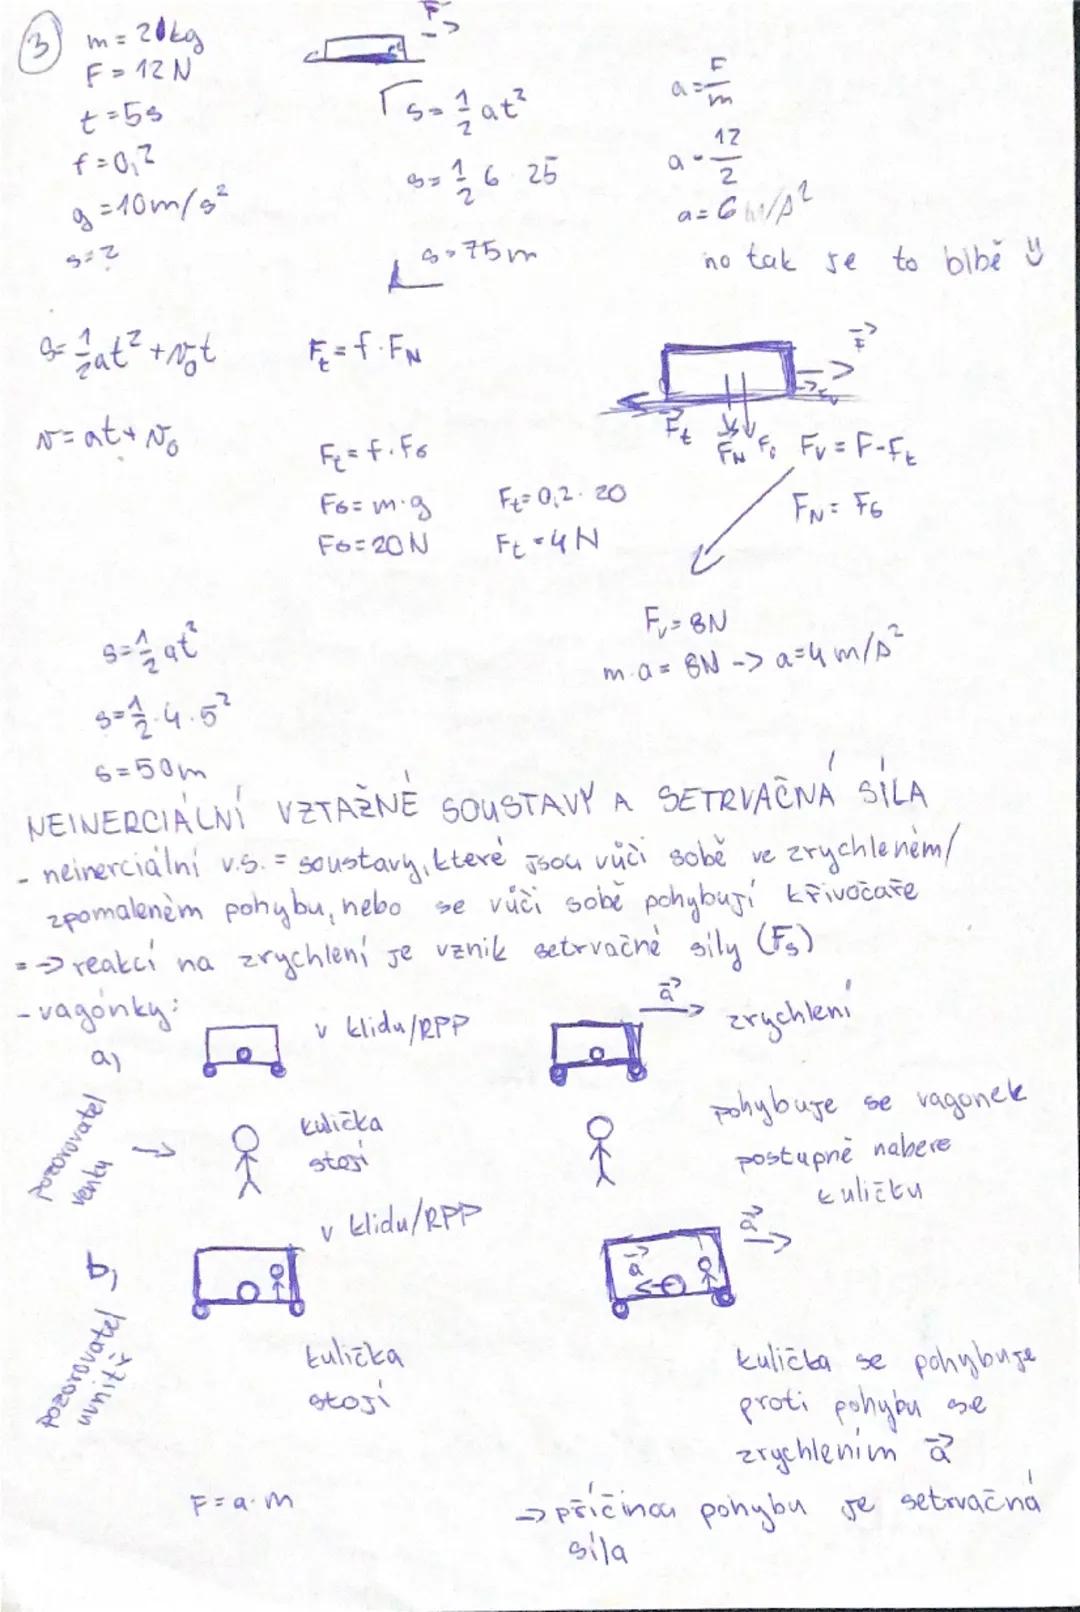 3
m = 2kg
F = 12 N
t = 5s
f = 0,2
g = 10m/s²
s = ?
F
s = 1/2 at²
s = 1/2 6 25
s = 75m
a = F/m
a = 12/2
a = 6 m/s²
no tak je to blbě
s = 1/2 at² + v₀t
v = at + v₀
Ft = f · FN
Ft = f · FG
FG = m · g
FG = 20N
Ft = 0,2 · 20
Ft = 4N
F
Fv
Ft
FN
FG
Fv = F - Ft
FN = FG
Fv = 8N
m · a = 8N -> a = 4 m/s²
s = 1/2 at²
s = 1/2 · 4 · 5²
s = 50m
NEINERCIÁLNÍ VZTAŽNÉ SOUSTAVY A SETRVAČNÁ SÍLA
- neinerciální v.s. = soustavy, které jsou vůči sobě ve zrychleném/
zpomaleném pohybu, nebo se vůči sobě pohybují křivočaře
=> reakcí na zrychlení je vznik setrvačné síly (Fs)
- vagónky:
a)
pozorovatel
venku
v klidu/RPP
a
zrychlení
kulička
stojí
pohybuje se vagonek
postupně nabere
kuličku
b)
pozorovatel
uvnitř
v klidu/RPP
a
a
kulička
stojí
kulička se pohybuje
proti pohybu se
zrychlením a
F = a · m
-> příčinou pohybu je setrvačná
síla